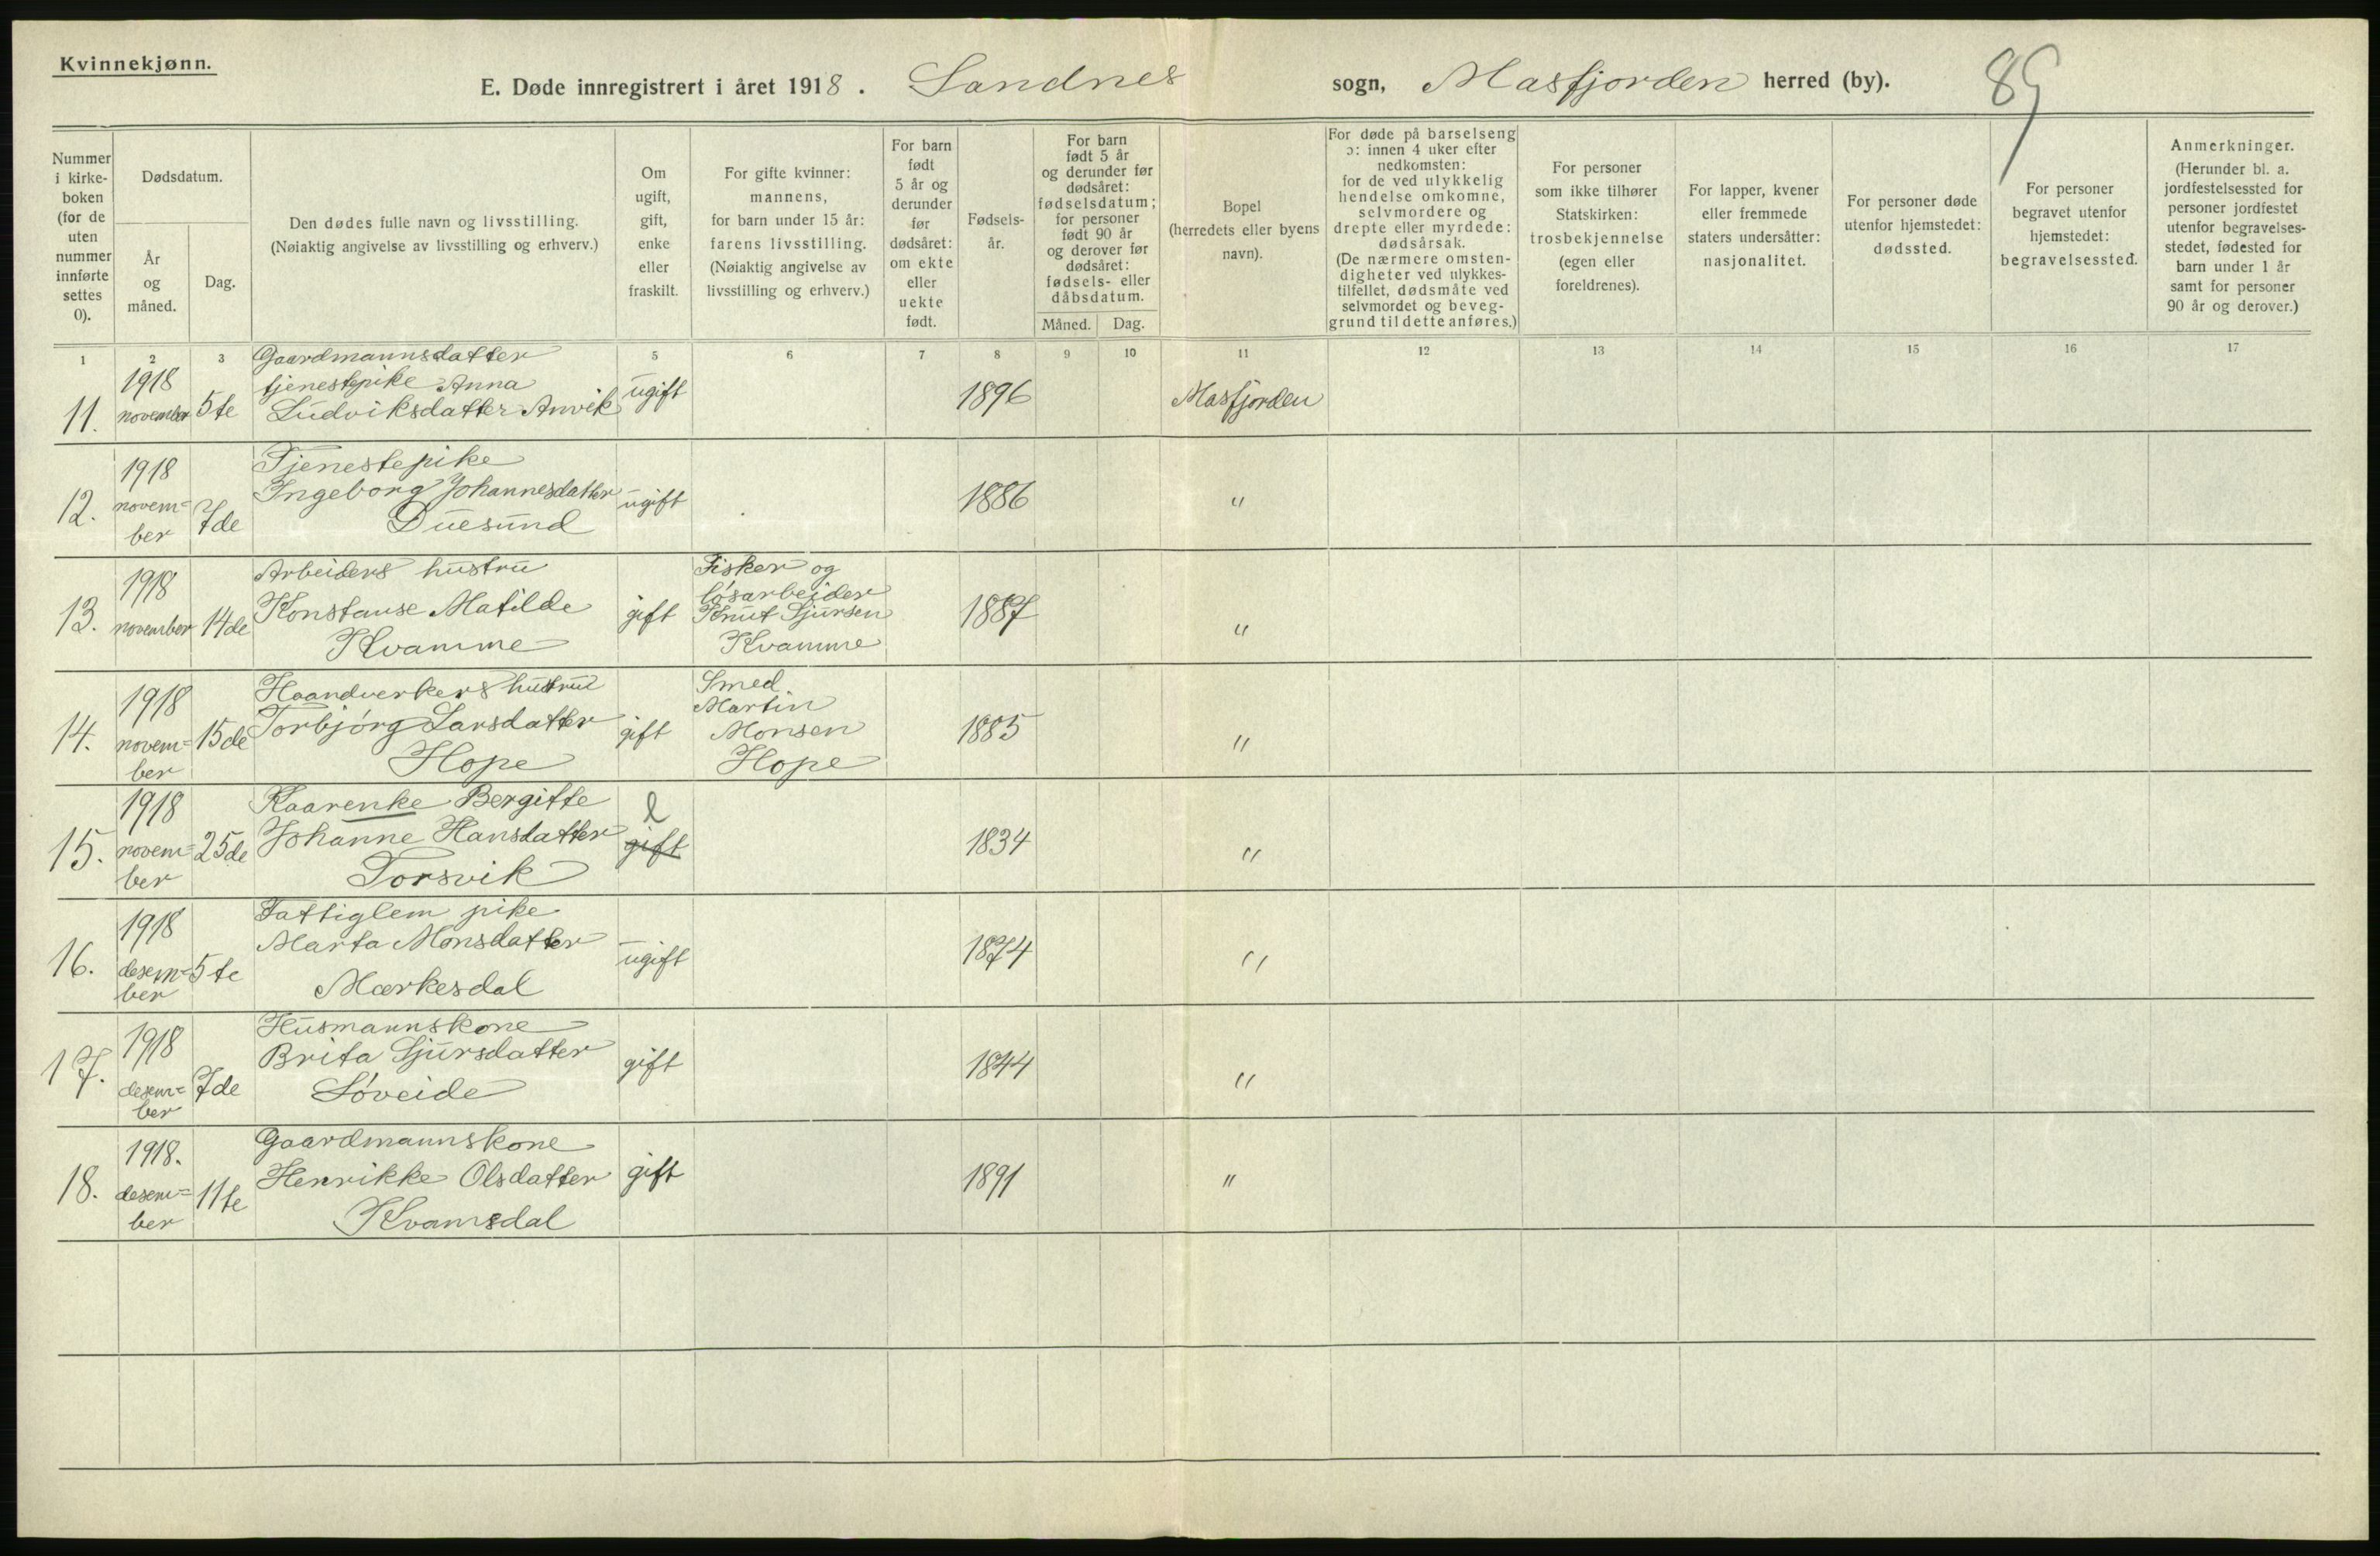 Kvinnekjønn.
E. Døde innregistrert i året 1918. Sandnes sogn, Masfjorden herred (by). 89
Nummer i kirke-boken (for de uten nummer innførte settes 0).
Dødsdatum.
År og måned.
Dag.
Den dødes fulle navn og livsstilling.
(Nøiaktig angivelse av livsstilling og erhverv.)
Om ugift, gift, enke eller fraskilt.
For gifte kvinner: mannens, for barn under 15 år: farens livsstilling. (Nøiaktig angivelse av livsstilling og erhverv.)
For barn født 5 år og derunder før dødsåret: om ekte eller uekte født.
Fødsels-år.
For barn født 5 år og derunder før dødsåret: fødselsdatum; for personer født 90 år og derover før dødsåret: fødsels- eller dåbsdatum.
Måned. Dag.
Bopel (herredets eller byens navn).
For døde på barselseng ɔ: innen 4 uker efter nedkomsten: for de ved ulykkelig hendelse omkomne, selvmordere og drepte eller myrdede: dødsårsak. (De nærmere omsten-digheter ved ulykkes-tilfellet, dødsmåte ved selvmordet og beveg-grund til dette anføres.)
For personer som ikke tilhører Statskirken: trosbekjennelse (egen eller foreldrenes).
For lapper, kvener eller fremmede staters undersåtter: nasjonalitet.
For personer døde utenfor hjemstedet: dødssted.
For personer begravet utenfor hjemstedet: begravelsessted.
Anmerkninger. (Herunder bl. a. jordfestelsessted for personer jordfestet utenfor begravelses-stedet, fødested for barn under 1 år samt for personer 90 år og derover.)
1 2 3 5 6 7 8 9 10 11 12 13 14 15 16 17
11. 1918 november 5te Gaardmannsdatter tjenestepike Anna Ludviksdatter Anvik ugift 1896 Masfjorden
12. 1918 novem=ber 7de Tjenestepike Ingeborg Johannesdatter Duesund ugift 1886 "
13. 1918 november 14de Arbeiders hustru Konstanse Matilde Kvamme gift Fisker og løsarbeider Knut Sjursen Kvamme 1887 "
14. 1918 novem=ber 15de Haandverkers hustru Torbjørg Larsdatter Hope gift Smed Martin Monsen Hope 1885 "
15. 1918 novem=ber 25de Kaarenke Bergitte Johanne Hansdatter Torsvik gift 1834 "
16. 1918 desem=ber 5te Fattiglem pike Marta Monsdatter Mærkesdal ugift 1874 "
17. 1918 desem=ber 7de Husmannskone Brita Sjursdatter Løveide gift 1844 "
18. 1918. desem=ber 11te Gaardmannskone Henrikke Olsdatter Kvamsdal gift 1891 "